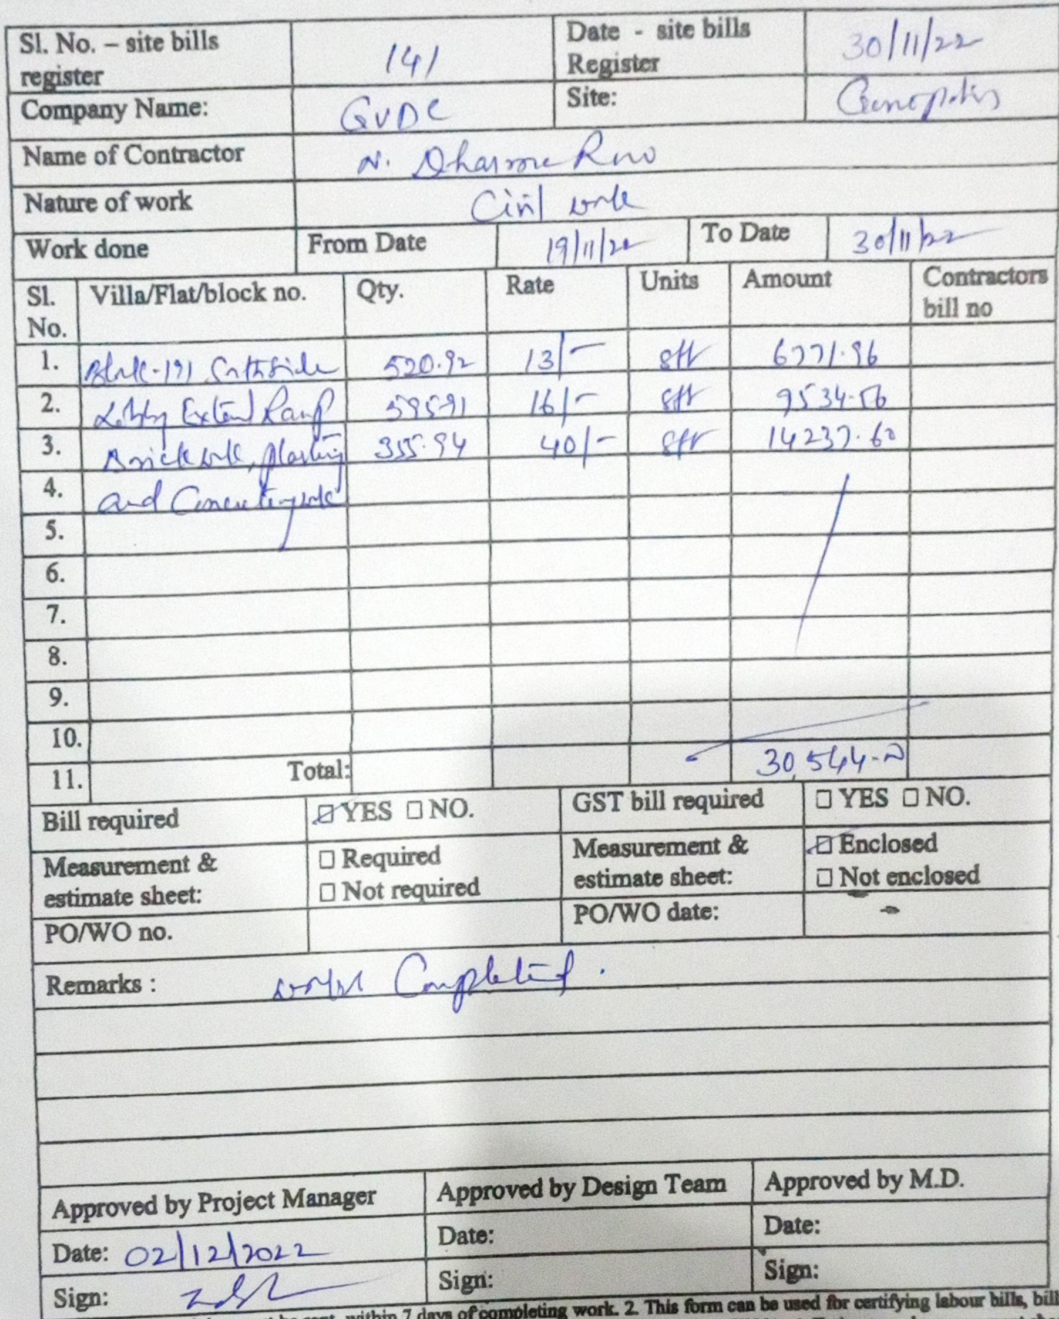 Sl. No. – site bills register 141 Date - site bills Register 30/11/22
Company Name: GVDC Site: Genopolis
Name of Contractor N. Dharma Rao
Nature of work Civil work
Work done From Date 19/11/22 To Date 30/11/22
Sl. No. Villa/Flat/block no. Qty. Rate Units Amount Contractors bill no
1. Block-191 Southside 520.92 13/- sft 6771.96
2. Lobby Extend Ramp 595.91 16/- sft 9534.56
3. Brick work, plasting 355.94 40/- sft 14237.60
4. and Concreting work
5.
6.
7.
8.
9.
10.
11. Total: 30,544
Bill required YES NO. GST bill required YES NO.
Measurement & estimate sheet: Required Measurement & estimate sheet: Enclosed
Not required Not enclosed
PO/WO no. PO/WO date: -
Remarks : work Completed.
Approved by Project Manager Approved by Design Team Approved by M.D.
Date: 02/12/2022 Date: Date:
Sign: Sign: Sign:
within 7 days of completing work. 2. This form can be used for certifying labour bills, bill